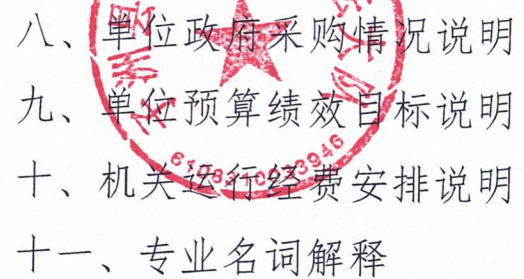 八、单位政府采购情况说明
九、单位预算绩效目标说明
十、机关运行经费安排说明
十一、专业名词解释